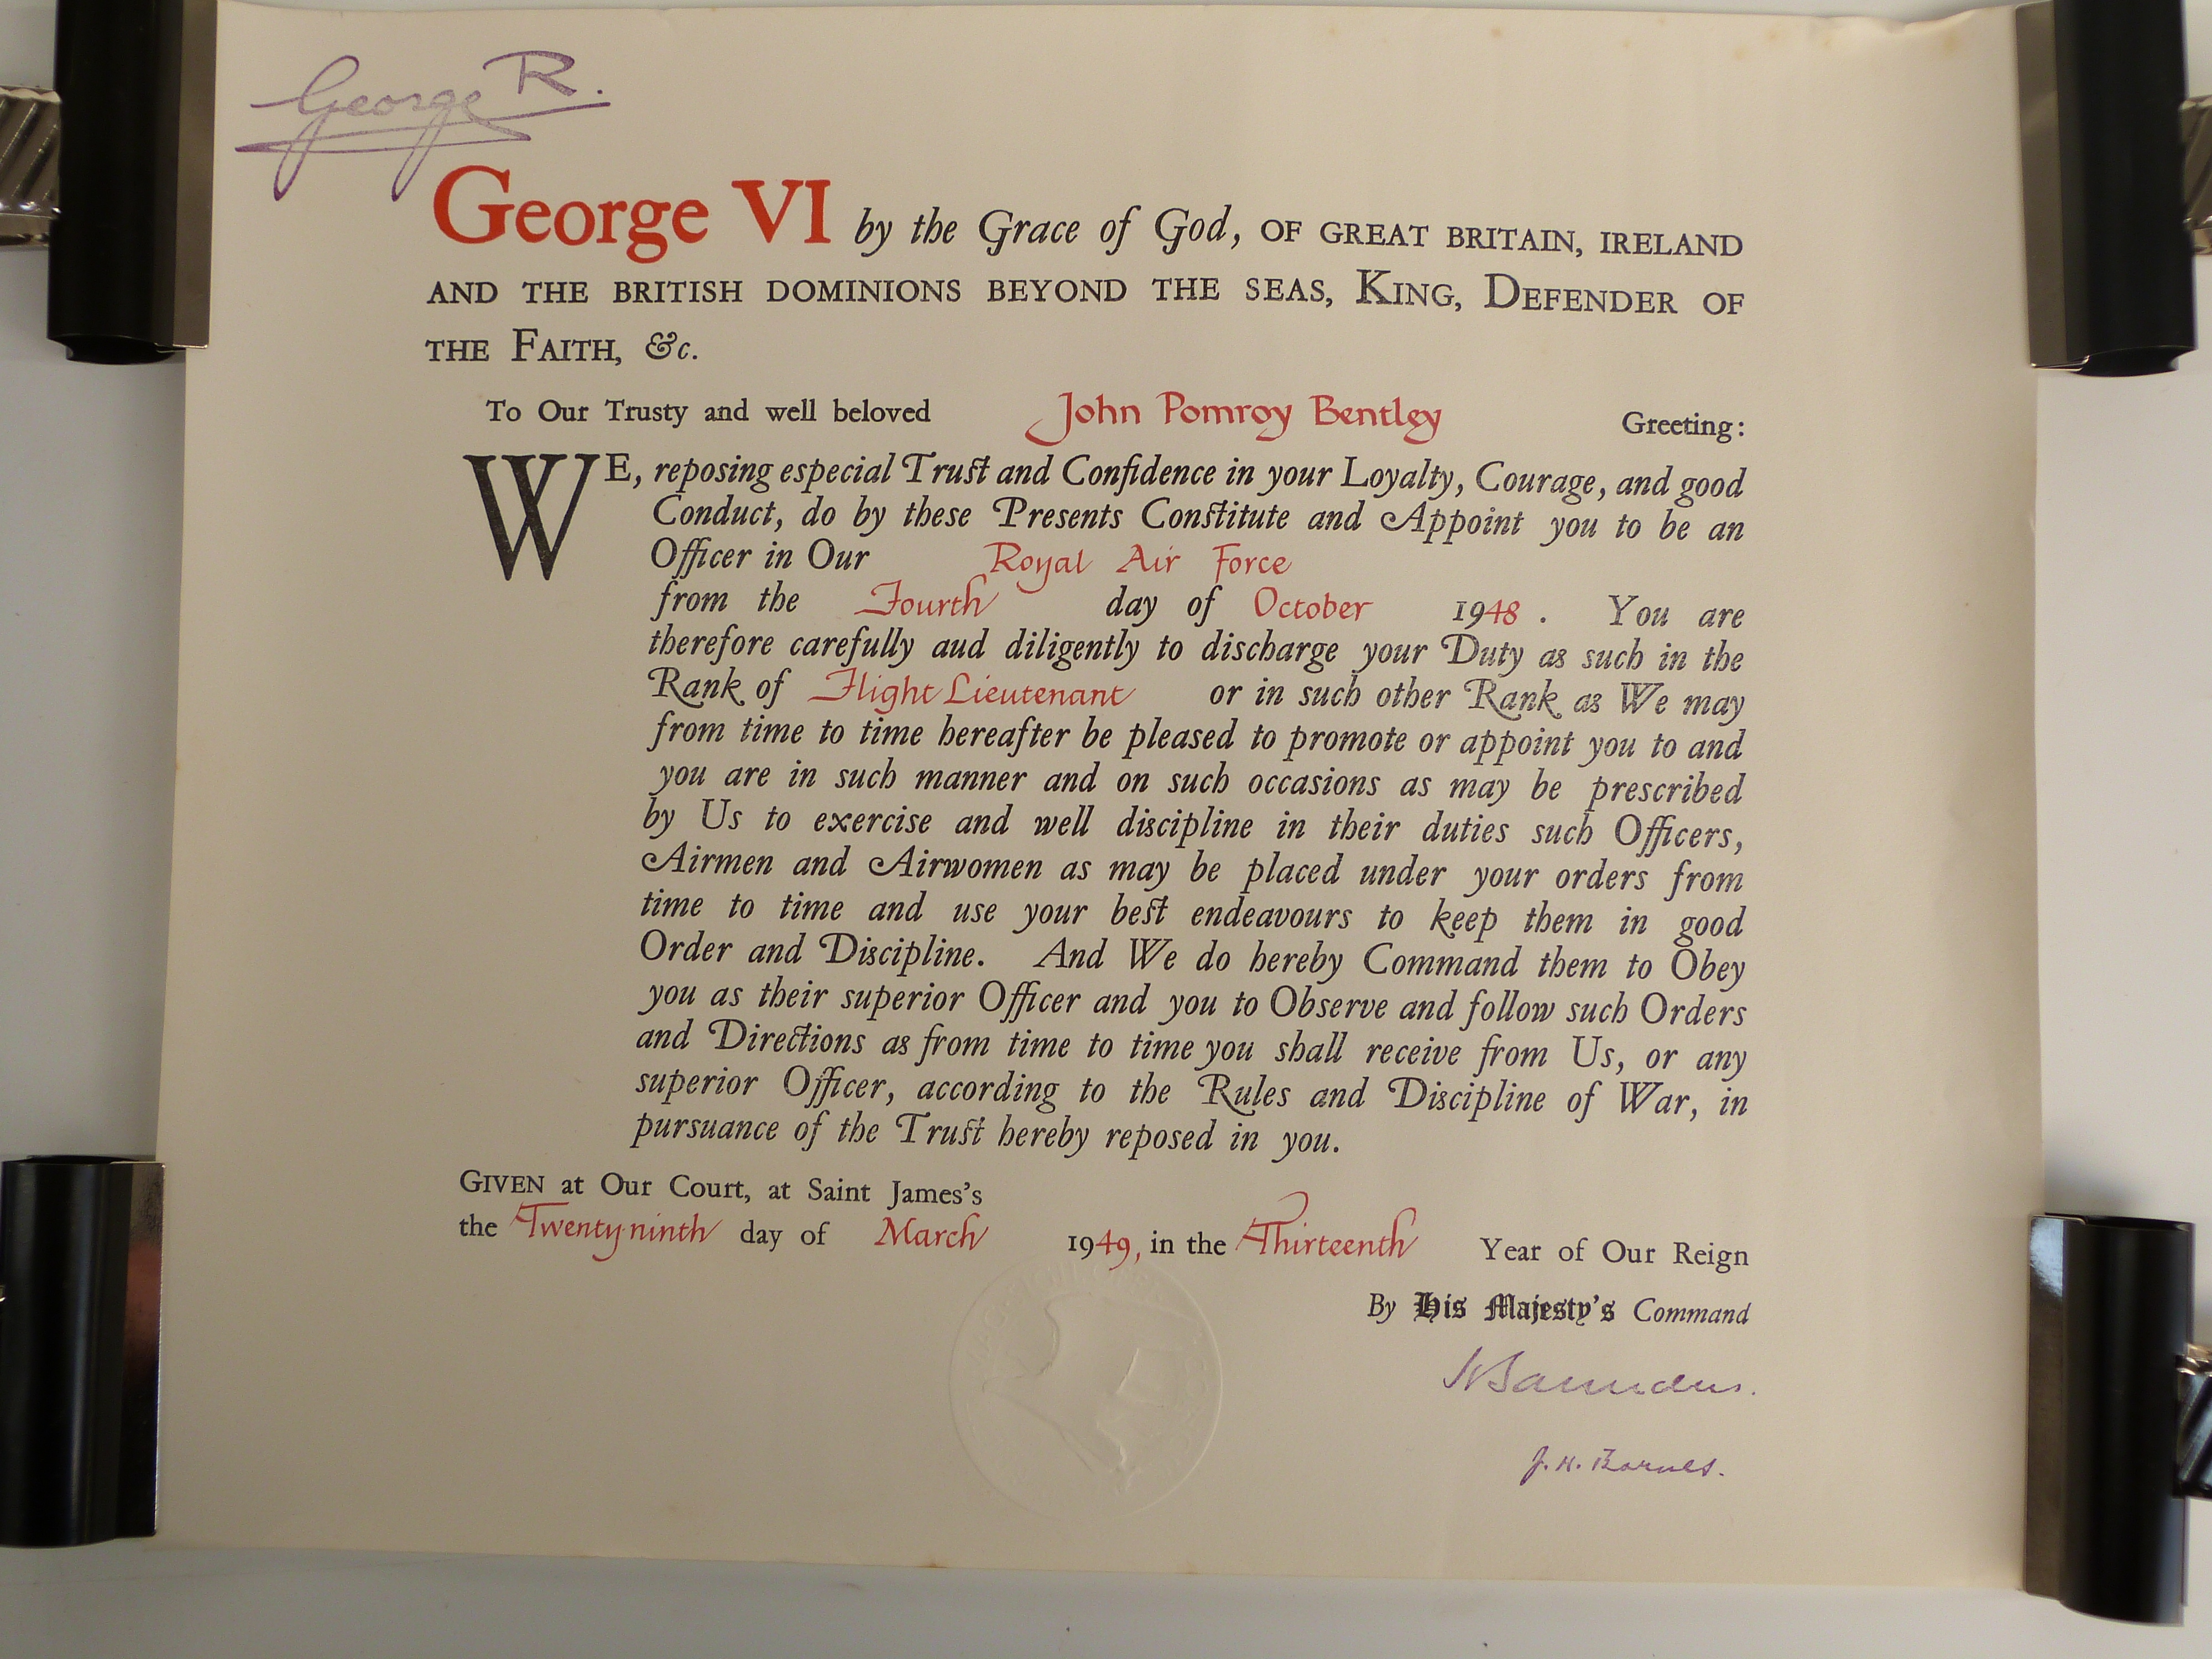 George R.
George VI by the Grace of God, OF GREAT BRITAIN, IRELAND
AND THE BRITISH DOMINIONS BEYOND THE SEAS, KING, DEFENDER OF
THE FAITH, &c.
To Our Trusty and well beloved John Pomroy Bentley Greeting:
WE, reposing especial Trust and Confidence in your Loyalty, Courage, and good
Conduct, do by these Presents Constitute and Appoint you to be an
Officer in Our Royal Air Force
from the Fourth day of October 1948. You are
therefore carefully aud diligently to discharge your Duty as such in the
Rank of Flight Lieutenant or in such other Rank as We may
from time to time hereafter be pleased to promote or appoint you to and
you are in such manner and on such occasions as may be prescribed
by Us to exercise and well discipline in their duties such Officers,
Airmen and Airwomen as may be placed under your orders from
time to time and use your best endeavours to keep them in good
Order and Discipline. And We do hereby Command them to Obey
you as their superior Officer and you to Observe and follow such Orders
and Directions as from time to time you shall receive from Us, or any
superior Officer, according to the Rules and Discipline of War, in
pursuance of the Trust hereby reposed in you.
GIVEN at Our Court, at Saint James's
the Twenty-ninth day of March 1949, in the Thirteenth Year of Our Reign
By His Majesty's Command
Saunders.
J. H. Barnes.